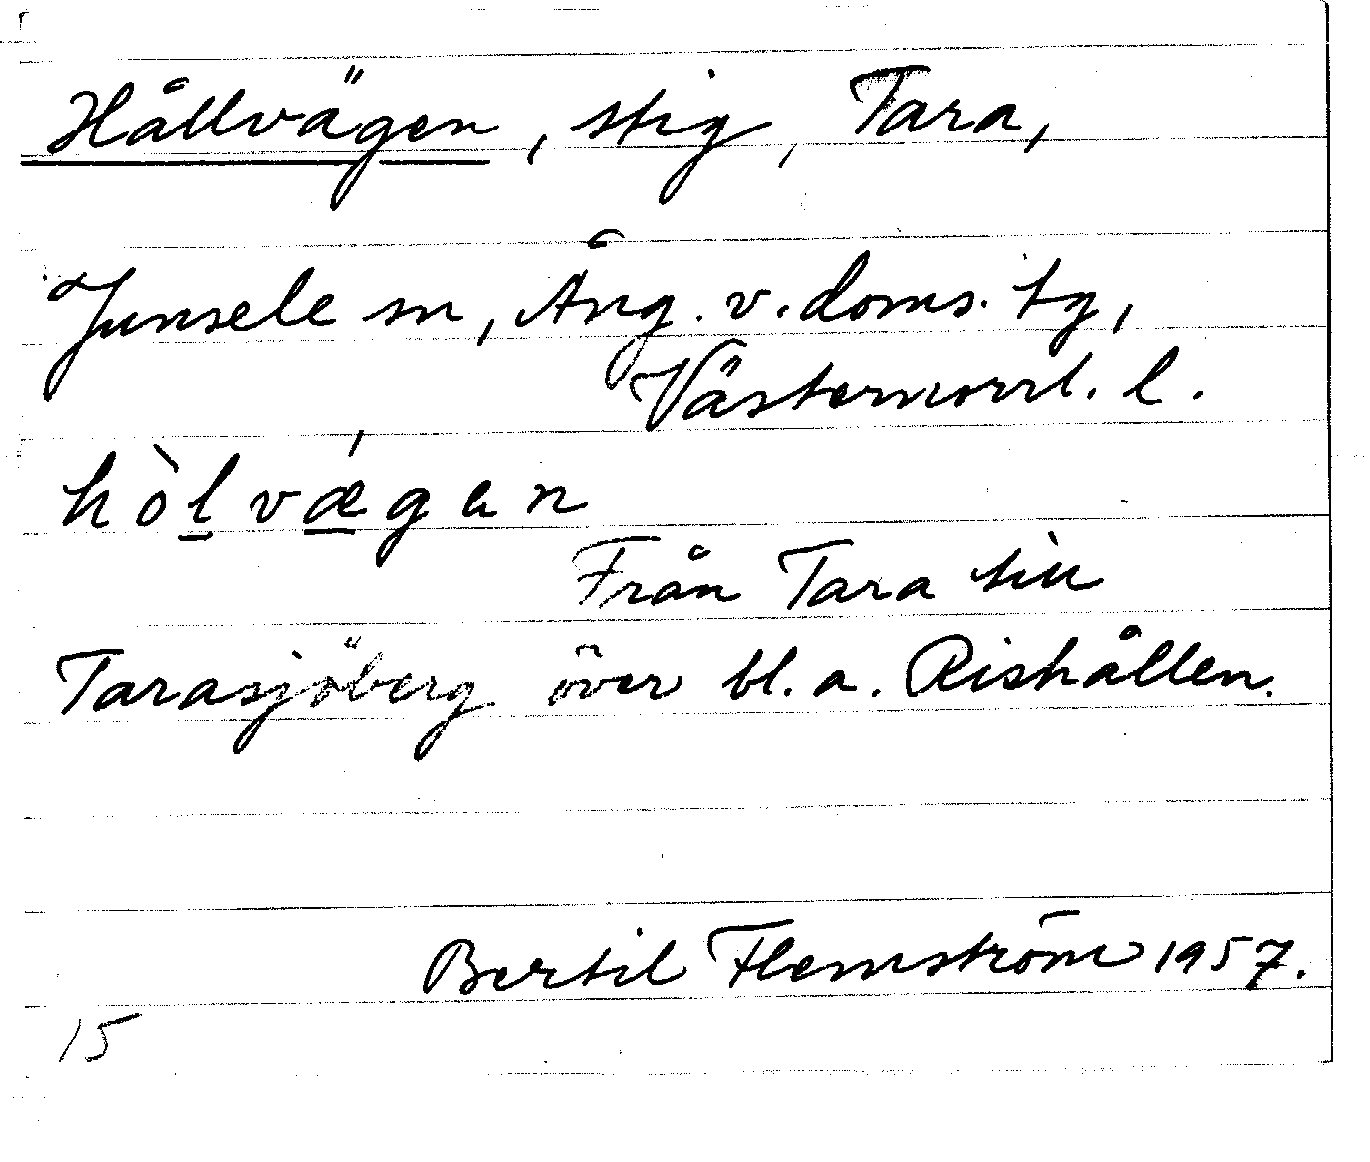 Hållvägen, stig, Tara,
Junsele sn, Ång. v. doms. tg,
Västernorrl. l.
hòlvǽgen
Från Tara till
Tarasjöberg över bl. a. Rishållen.
Bertil Flemström 1957.
15